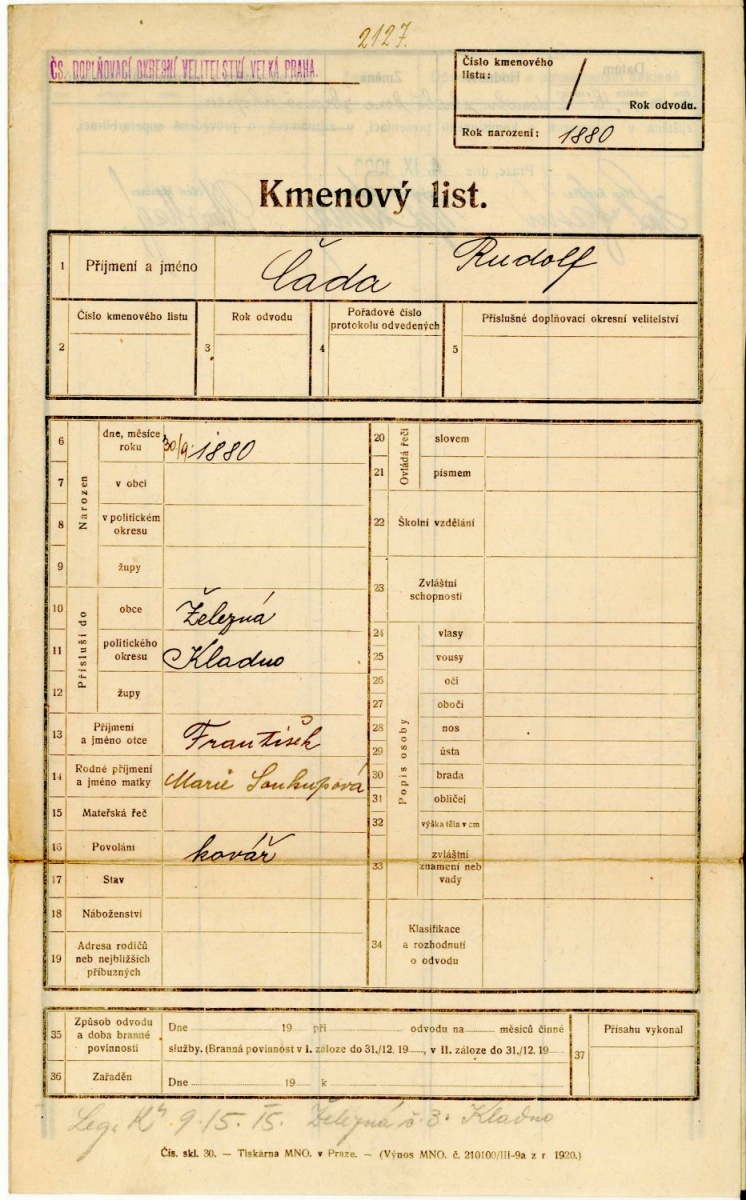 2127.
ČS. DOPLŇOVACÍ OKRESNÍ VELITELSTVÍ VELKÁ PRAHA.
Číslo kmenového listu: /
Rok odvodu.
Rok narození: 1880
Kmenový list.
1 Příjmení a jméno Čada Rudolf
2 Číslo kmenového listu
3 Rok odvodu
4 Pořadové číslo protokolu odvedených
5 Příslušné doplňovací okresní velitelství
Narozen
6 dne, měsíce roku 30/9. 1880
7 v obci
8 v politickém okresu
9 župy
Přísluší do
10 obce Železná
11 politického okresu Kladno
12 župy
13 Příjmení a jméno otce František
14 Rodné příjmení a jméno matky Marie Soukupová
15 Mateřská řeč
16 Povolání kovář
17 Stav
18 Náboženství
19 Adresa rodičů neb nejbližších příbuzných
Ovládá řeči
20 slovem
21 písmem
22 Školní vzdělání
23 Zvláštní schopnosti
Popis osoby
24 vlasy
25 vousy
26 oči
27 obočí
28 nos
29 ústa
30 brada
31 obličej
32 výška těla v cm
33 zvláštní znamení neb vady
34 Klasifikace a rozhodnutí o odvodu
35 Způsob odvodu a doba branné povinnosti
Dne 19 při odvodu na měsíců činné
služby. (Branná povinnost v I. záloze do 31./12. 19 , v II. záloze do 31./12. 19
36 Zařaděn
Dne 19 k
37 Přísahu vykonal
Železná č. 3. Kladno
Čís. skl. 30. — Tiskárna MNO. v Praze. — (Výnos MNO. č. 210100/III-9a z r. 1920.)